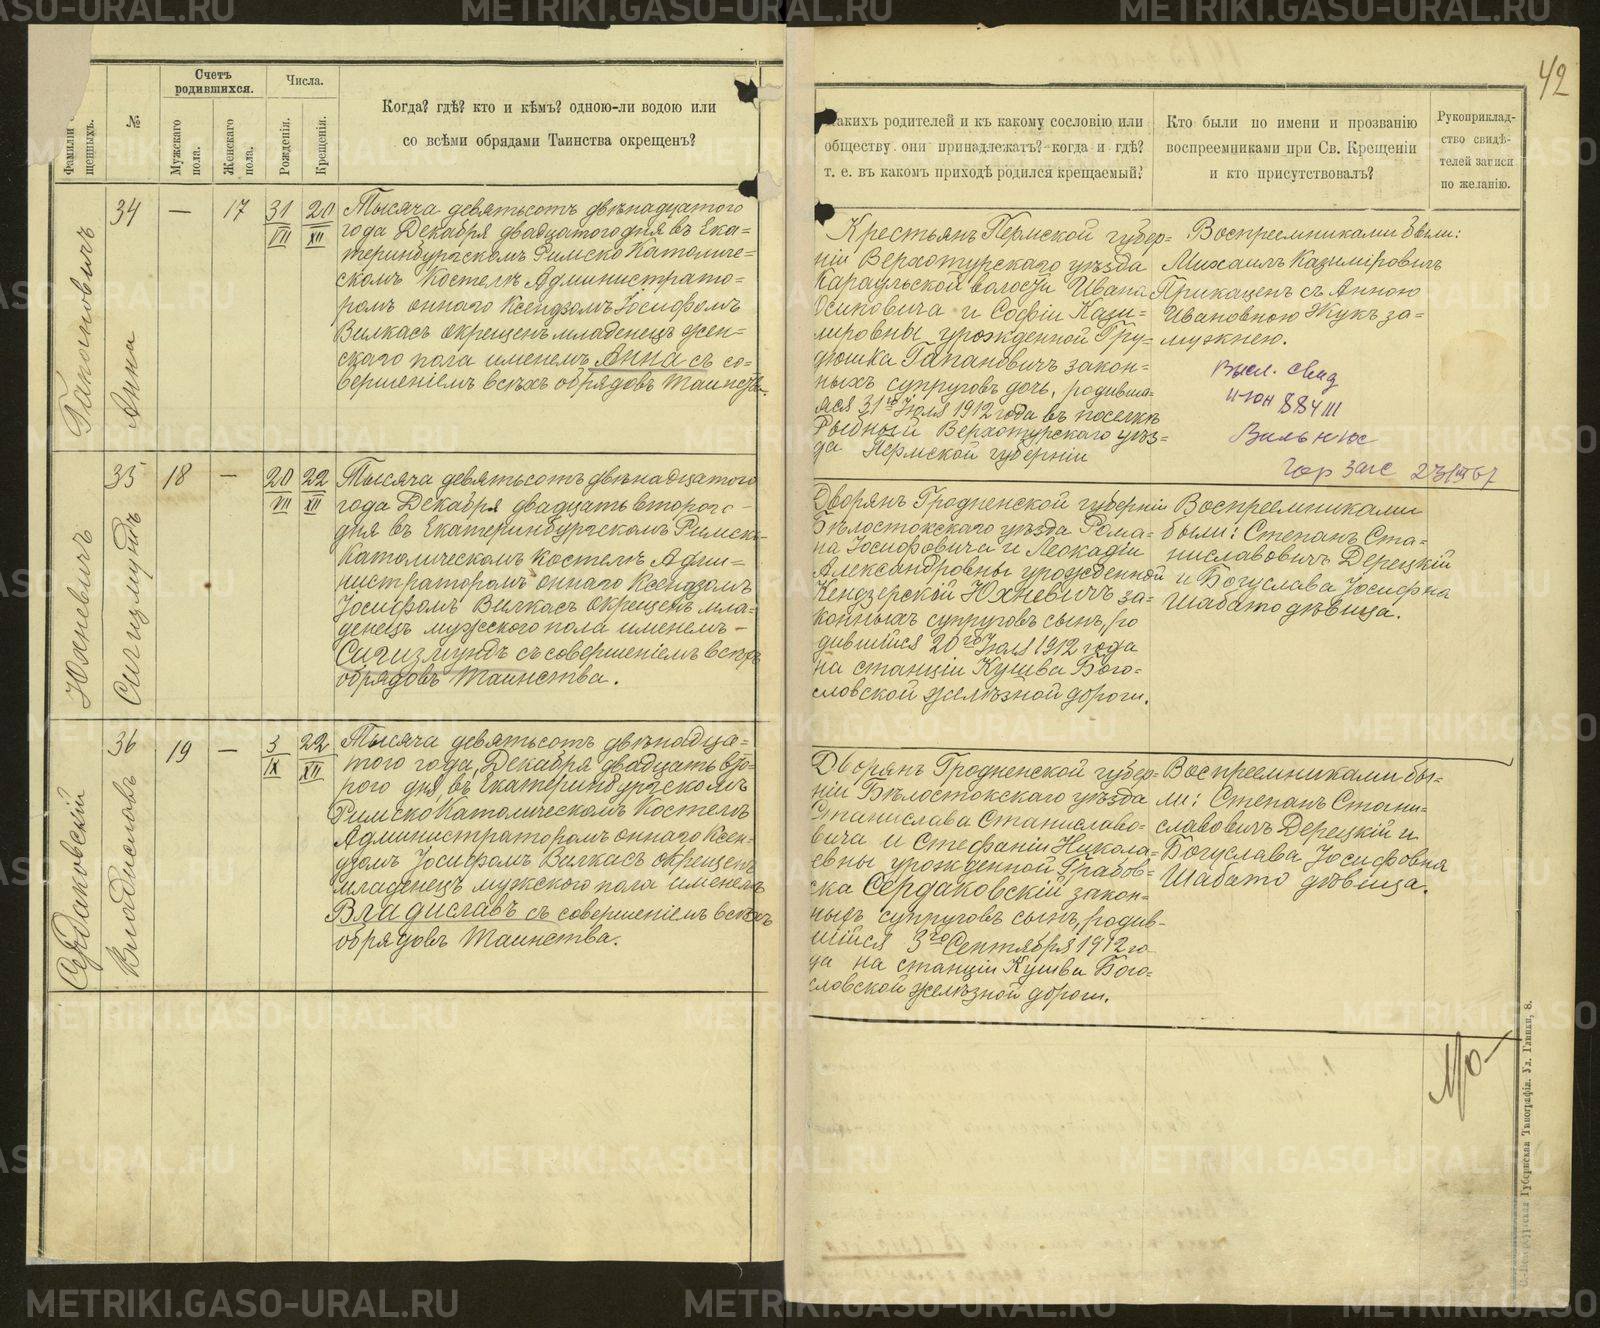 METRIKI.GASO-URAL.RU
42
Фамиліи
щенныхъ.
№
Счетъ
родившихся.
Мужскаго
пола.
Женскаго
пола.
Числа.
Рожденія.
Крещенія.
Когда? гдѣ? кто и кѣмъ? одною-ли водою или
со всѣми обрядами Таинства окрещенъ?
какихъ родителей и къ какому сословію или
обществу они принадлежатъ? когда и гдѣ?
т. е. въ какомъ приходѣ родился крещаемый?
Кто были по имени и прозванію
воспреемниками при Св. Крещеніи
и кто присутствовалъ?
Рукоприклад-
ство свидѣ-
телей записи
по желанію.
Гапановичъ
Анна
34
—
17
31
VII
20
XII
Тысяча девятьсотъ двѣнадцатого
года Декабря двадцатого дня въ Ека-
теринбургскомъ Римско Католиче-
скомъ Костелѣ Администрато-
ромъ оннаго Ксендзомъ Іосифомъ
Вилкасъ окрещенъ младенецъ жен-
скаго пола именемъ Анна съ со-
вершеніемъ всѣхъ обрядовъ Таинства.
Крестьянъ Пермской губер-
ніи Верхотурскаго уѣзда
Караульской волости Ивана
Осиповича и Софіи Кази-
мировны урожденной Гру-
дюшка Гапановичъ закон-
ныхъ супруговъ дочь, родивша-
яся 31го Іюля 1912 года въ поселкѣ
Рыбный Верхотурскаго уѣз-
да Пермской губерніи
Воспреемниками были:
Михаилъ Казиміровичъ
Прикащенъ съ Анною
Ивановною Жукъ за-
мужнею.
Высл. свид
Вильнюс
гор загс
Юхневичъ
Сигизмундъ
35
18
—
20
VII
22
XII
Тысяча девятьсотъ двѣнадцатого
года Декабря двадцать второго
дня въ Екатеринбургскомъ Римско
Католическомъ Костелѣ Адми-
нистраторомъ оннаго Ксендзомъ
Іосифомъ Вилкасъ окрещенъ мла-
денецъ мужского пола именемъ -
Сигизмундъ съ совершеніемъ всѣхъ
обрядовъ Таинства.
Дворянъ Гродненской губерніи
Бѣлостокскаго уѣзда Рома-
на Іосифовича и Леокадіи
Александровны урожденной
Кендзерской Юхневичъ за-
конныхъ супруговъ сынъ, ро
дившійся 20го Іюля 1912 года
на станціи Кушва Бого-
словской желѣзной дороги.
Воспреемниками
были: Степанъ Ста-
ниславовичъ Дерецкій
и Богуслава Іосифна
Шабато дѣвица.
Сердаковскій
Владиславъ
36
19
—
3
IX
22
XII
Тысяча девятьсотъ двѣнадца-
того года, Декабря двадцать вто-
рого дня, въ Екатеринбургскомъ
Римско Католическомъ Костелѣ
Администраторомъ оннаго Ксен-
дзомъ Іосифомъ Вилкасъ окрещенъ
младенецъ мужского пола именемъ
Владиславъ съ совершеніемъ всѣхъ
обрядовъ Таинства.
Дворянъ Гродненской губер-
ніи Бѣлостокскаго уѣзда
Станислава Станиславо-
вича и Стефаніи Никола-
евны урожденной Грабов-
ска Сердаковскій закон-
ныхъ супруговъ сынъ, родив-
шійся 3го Сентября 1912 го
да на станціи Кушва Бого-
словской желѣзной дороги.
Воспреемниками бы-
ли: Степанъ Стани-
славовичъ Дерецкій и
Богуслава Іосифовна
Шабато дѣвица.
Губернская Типографія. Ул. Глинки, 8.